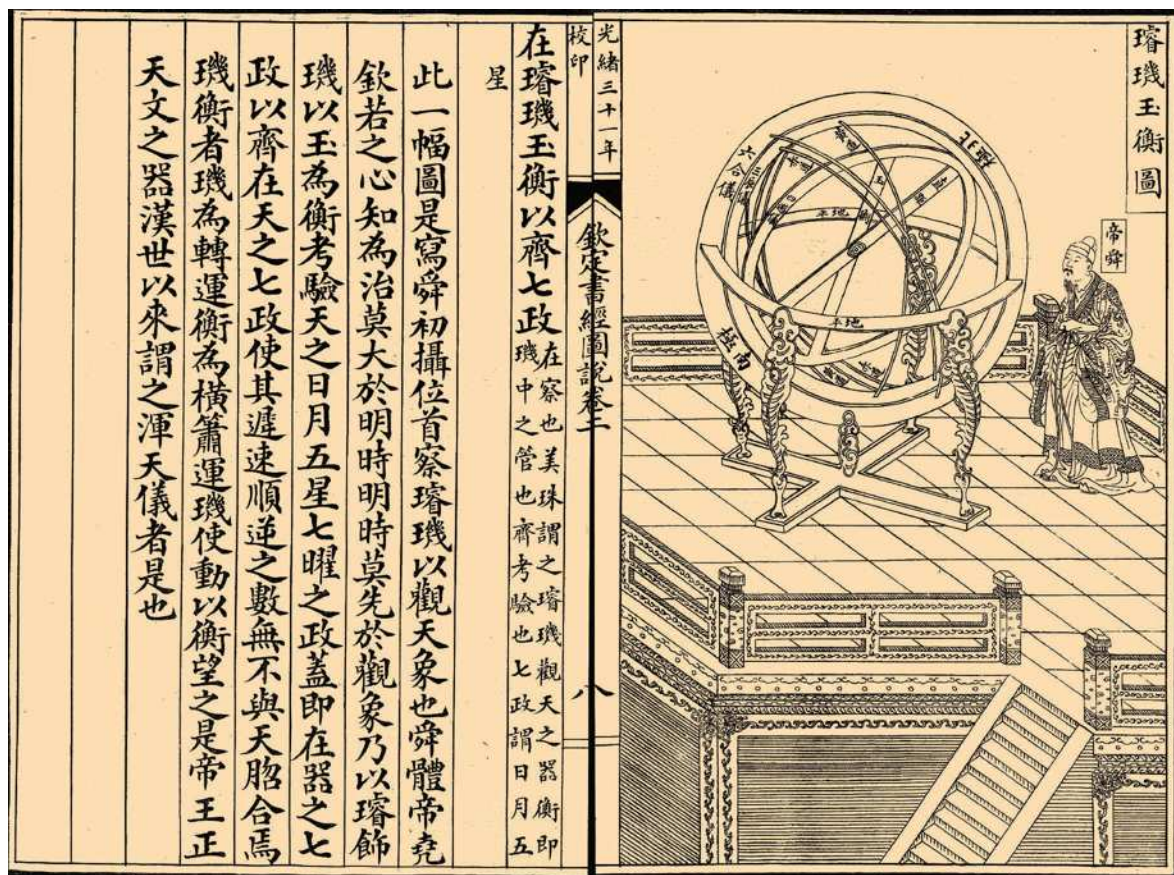 璿璣玉衡圖
帝舜
六合儀
北極
南極
地平
地平
光緒三十一年
校印
欽定書經圖說卷二
八
在璿璣玉衡以齊七政
在察也美珠謂之璿璣觀天之器衡即
璣中之管也齊考驗也七政謂日月五
星
此一幅圖是寫舜初攝位首察璿璣以觀天象也舜體帝堯
欽若之心知為治莫大於明時明時莫先於觀象乃以璿飾
璣以玉為衡考驗天之日月五星七曜之政蓋即在器之七
政以齊在天之七政使其遲速順逆之數無不與天脗合焉
璣衡者璣為轉運衡為橫簫運璣使動以衡望之是帝王正
天文之器漢世以來謂之渾天儀者是也